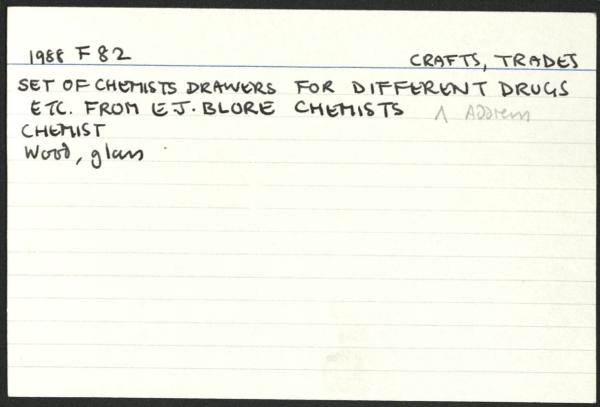 1988 F 82 CRAFTS, TRADES
SET OF CHEMISTS DRAWERS FOR DIFFERENT DRUGS
ETC. FROM E J. BLORE CHEMISTS ^ Address
CHEMIST
Wood, glass